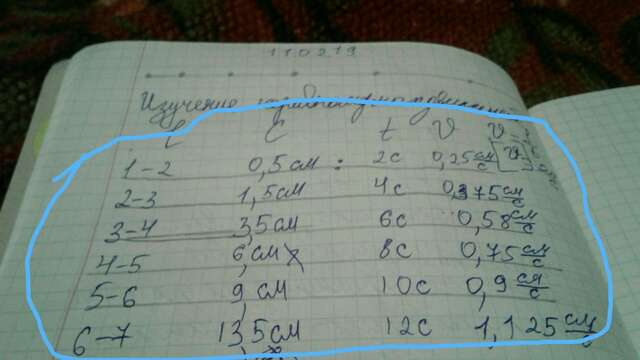 11.02.19
Изучение неравномерного движения
t C t V V
1-2 0,5см : 2с 0,25 см/с
2-3 1,5см 4с 0,375 см/с
3-4 3,5см 6с 0,58 см/с
4-5 6,см 8с 0,75 см/с
5-6 9,см 10с 0,9 см/с
6-7 13,5см 12с 1,125 см/с